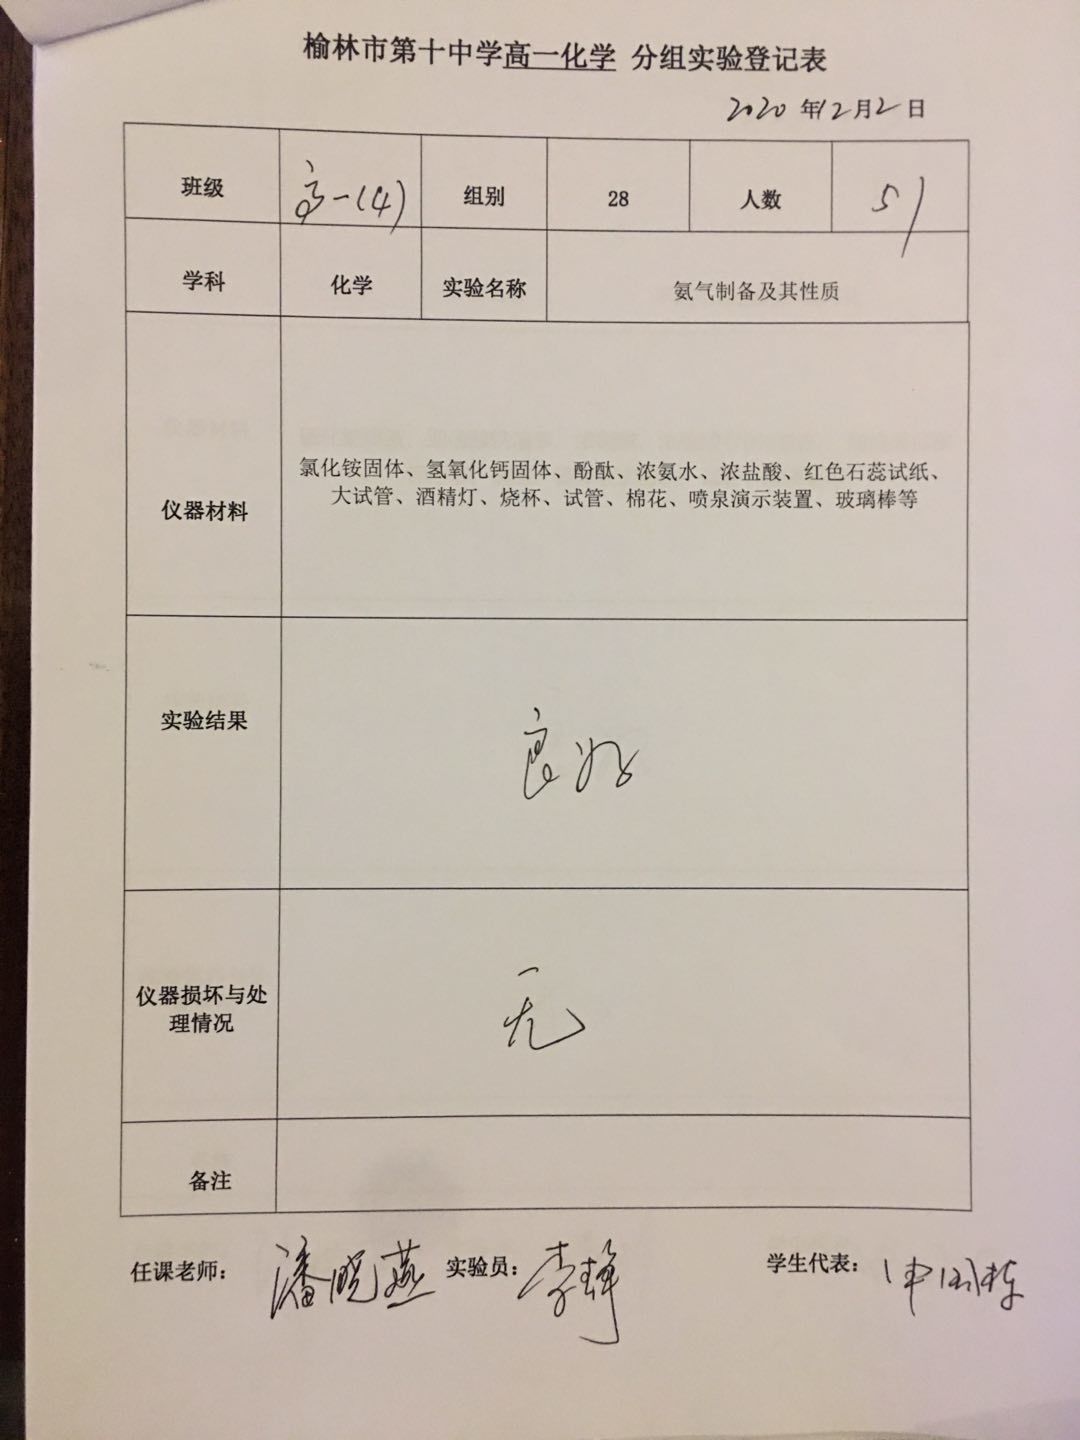 榆林市第十中学高一化学 分组实验登记表
2020 年12月2日
班级 高一(4) 组别 28 人数 51
学科 化学 实验名称 氨气制备及其性质
仪器材料
氯化铵固体、氢氧化钙固体、酚酞、浓氨水、浓盐酸、红色石蕊试纸、
大试管、酒精灯、烧杯、试管、棉花、喷泉演示装置、玻璃棒等
实验结果 良好
仪器损坏与处
理情况
无
备注
任课老师: 潘晓燕 实验员: 李静 学生代表: